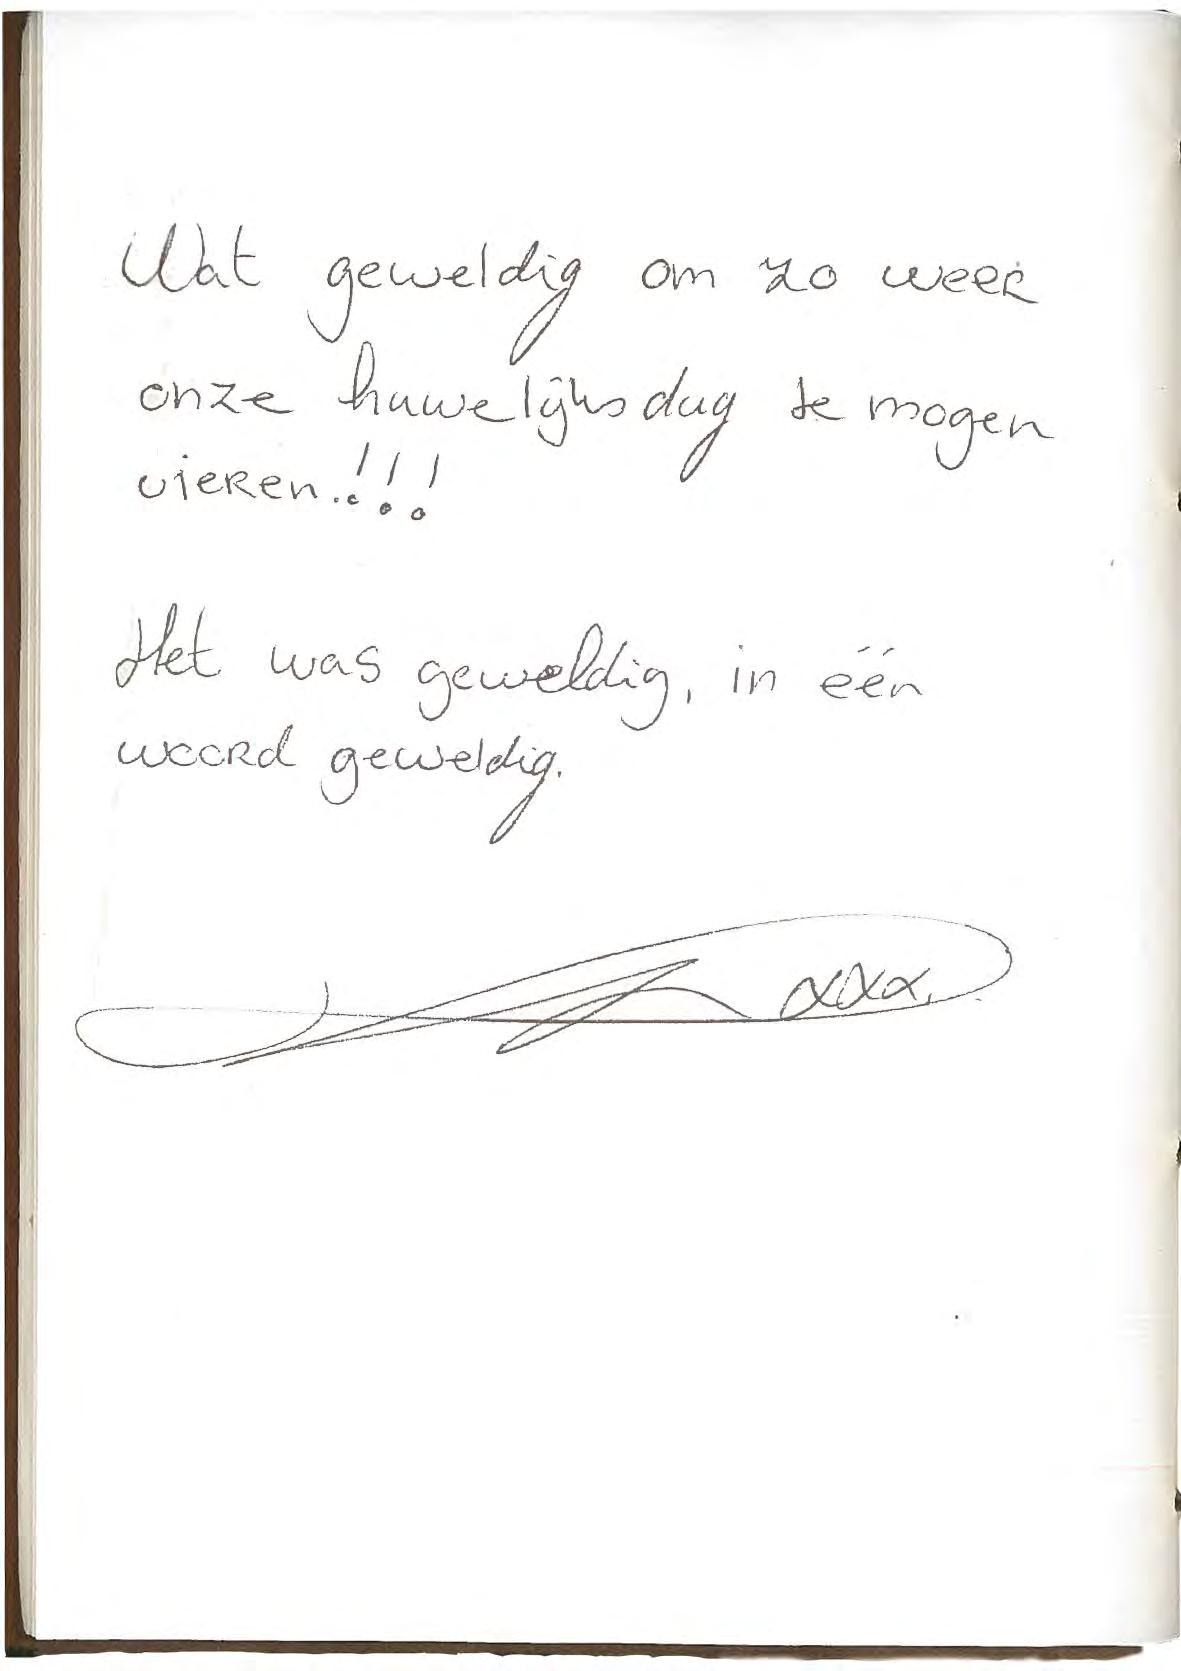 Wat geweldig om zo weer
onze huwelijksdag te mogen
vieren.!!!
Het was geweldig, in één
woord geweldig.
xxx.